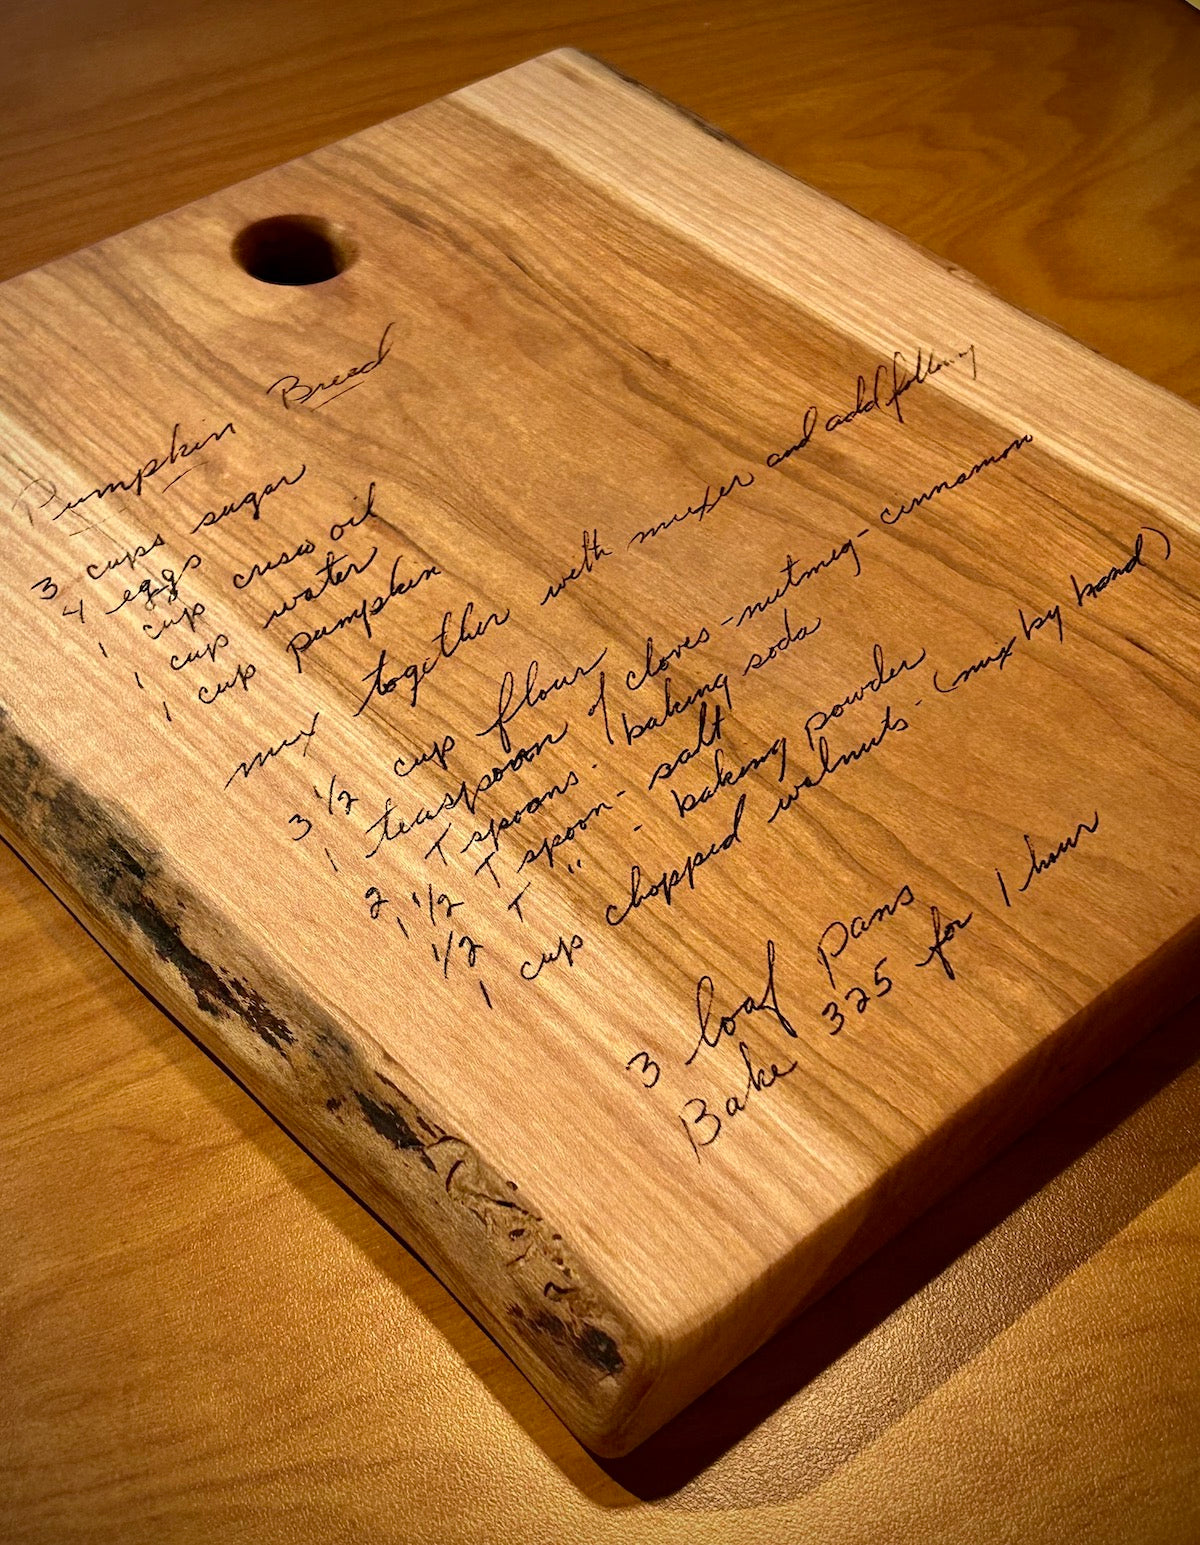 Pumpkin Bread
3 cups sugar
4 eggs
1 cup crisco oil
1 cup water
1 cup pumpkin
mix together with mixer and add following
3 1/2 cup flour
1 teaspoon of cloves - nutmeg - cinnamon
2 T spoons. baking soda
1 1/2 T spoon - salt
1/2 T " - baking powder
1 cup chopped walnuts - (mix by hand)
3 loaf pans
Bake 325 for 1 hour